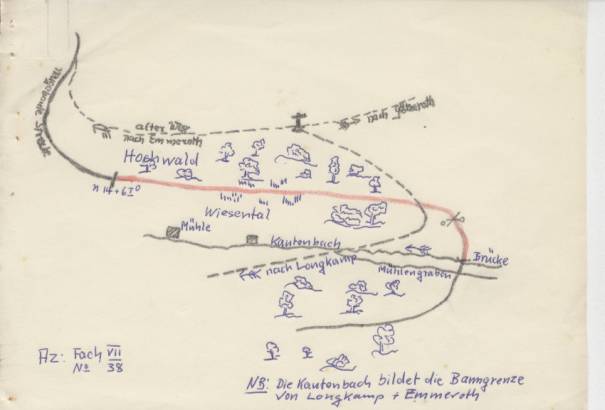 alter Weg
nach Emmeroth
nach Götzeroth
Hochwald
Wiesental
Mühle
Kautenbach
nach Longkamp
Mühlengraben
Brücke
Az: Fach VII
No 38
NB: Die Kautenbach bildet die Banngrenze
von Longkamp + Emmeroth